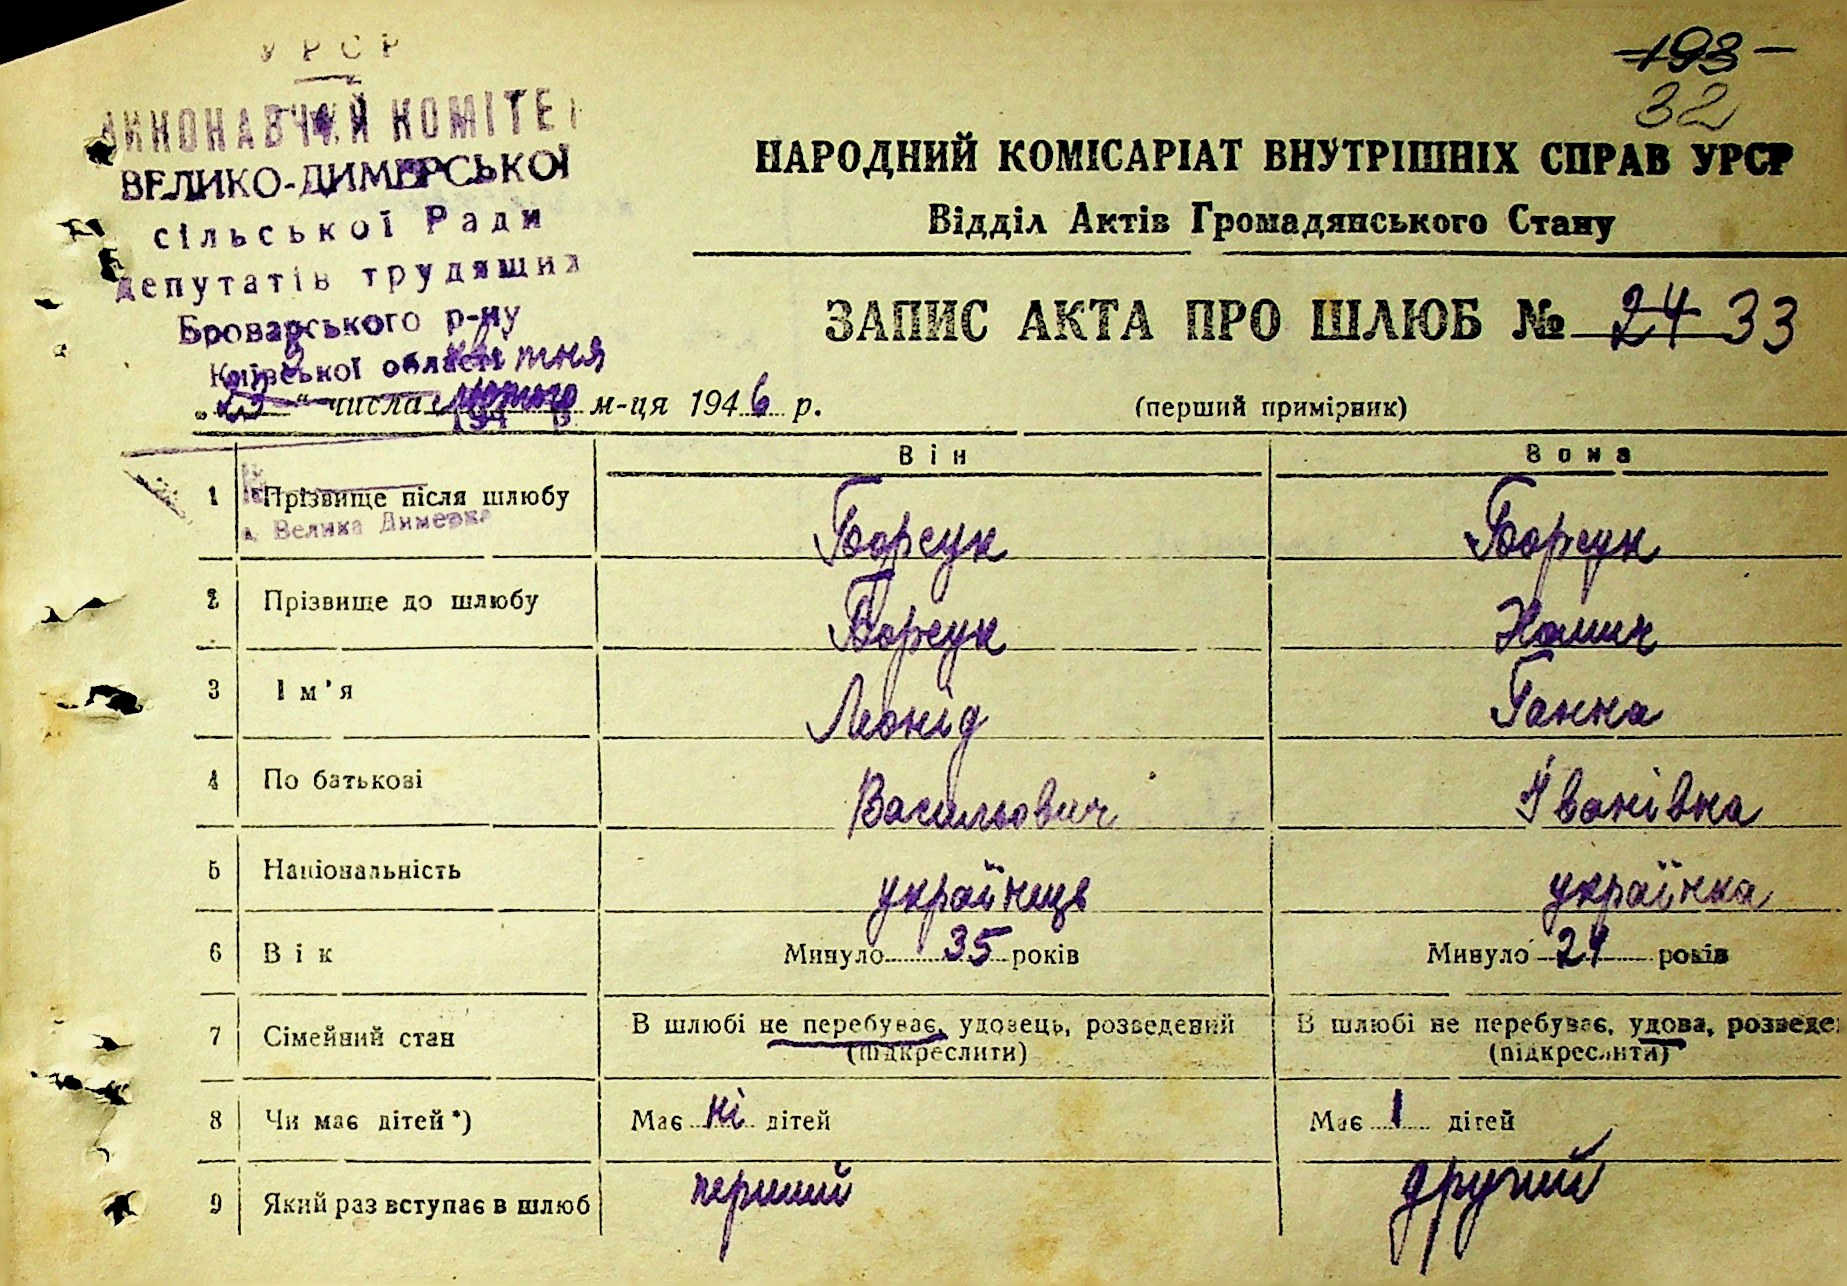 УРСР
ВИКОНАВЧИЙ КОМІТЕТ
ВЕЛИКО-ДИМЕРСЬКОЇ
сільської Ради
депутатів трудящих
Броварського р-ну
Київської області
193
32
НАРОДНИЙ КОМІСАРІАТ ВНУТРІШНІХ СПРАВ УРСР
Відділ Актів Громадянського Стану
ЗАПИС АКТА ПРО ШЛЮБ № 24 33
квітня
„23“ числа лютого м-ця 1946 р.
(перший примірник)
Він Вона
1 Прізвище після шлюбу Борсук Борсук
с. Велика Димерка
2 Прізвище до шлюбу Борсук
3 Ім'я Леонід Ганна
4 По батькові Васильович Іванівна
5 Національність українець українка
6 Вік Минуло 35 років Минуло років
7 Сімейний стан В шлюбі не перебуває, удовець, розведений В шлюбі не перебуває, удова, розведе
(підкреслити) (підкреслити)
8 Чи має дітей*) Має ні дітей Має 1 дітей
9 Який раз вступає в шлюб перший другий